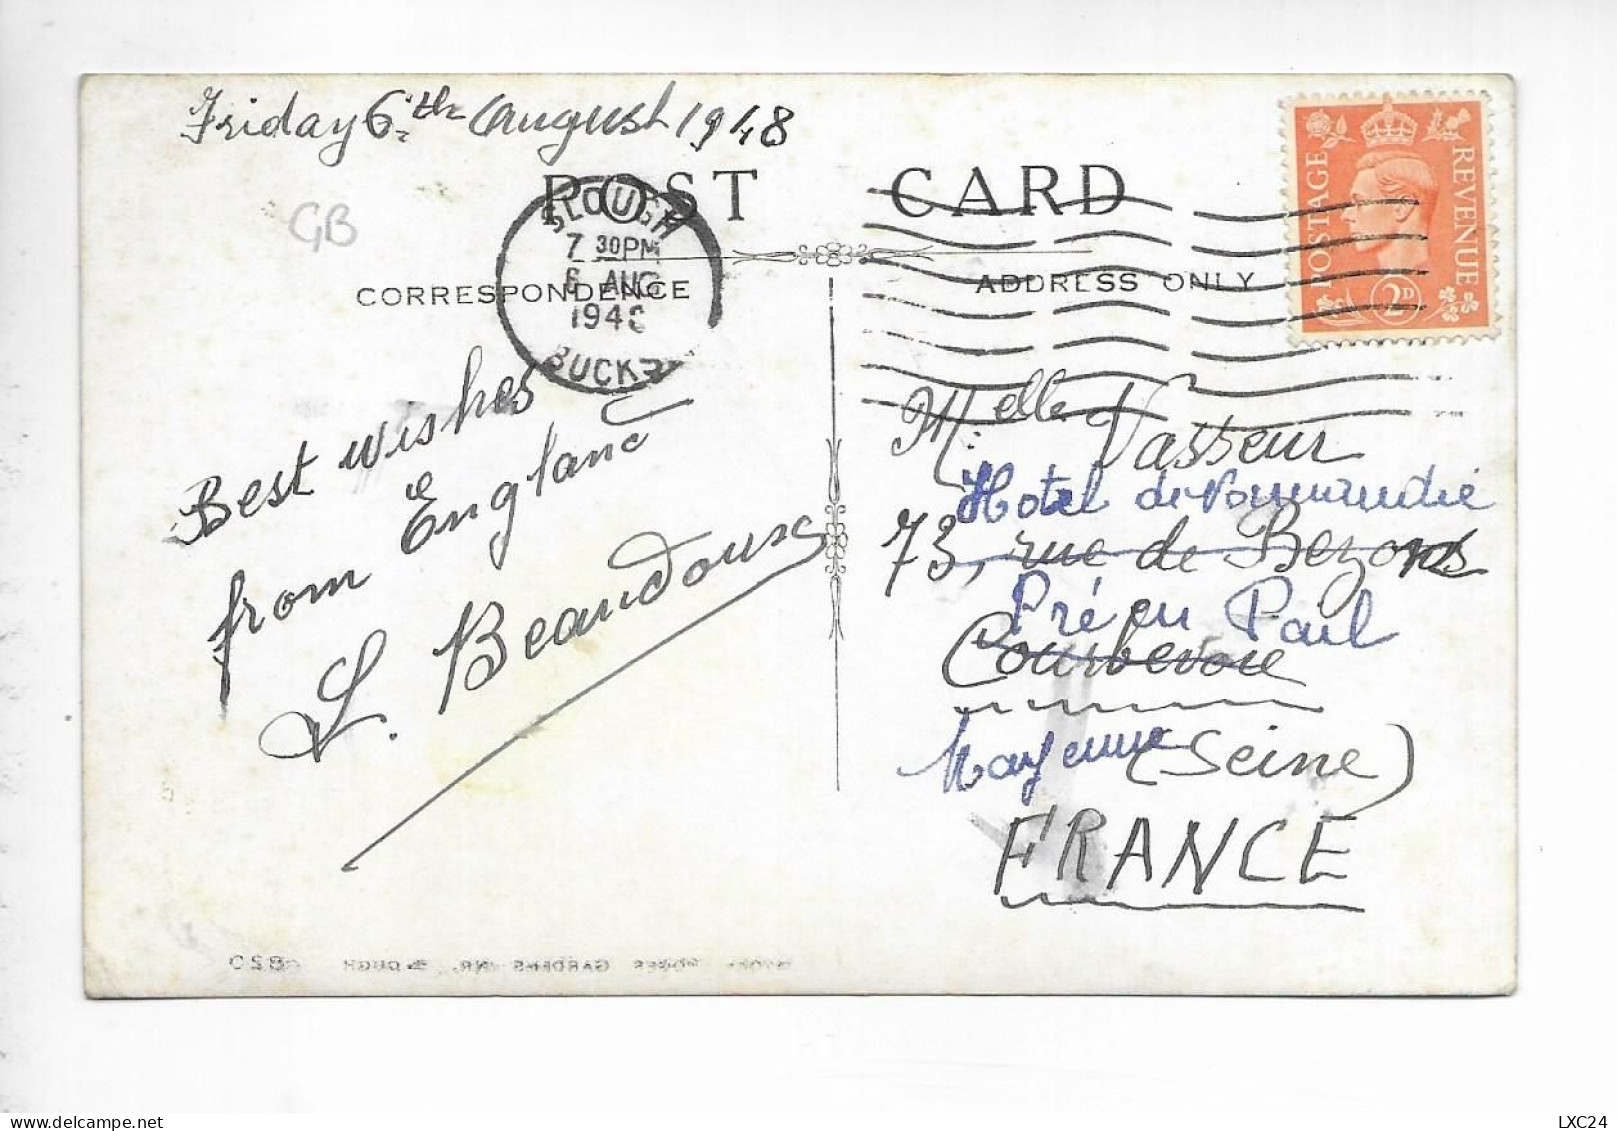 Friday 6th August 1948
POST CARD
GB
SLOUGH
7 30PM
6 AUG
194
BUCKS
CORRESPONDENCE
ADDRESS ONLY
POSTAGE
REVENUE
2D
Best wishes
from England
L. Beaudoux
Melle Vasseur
Hotel de Normandie
73, rue de Bezons
Pré en Pail
Courbevoie
Mayenne (Seine)
FRANCE
GARDENS NR. SLOUGH
C 820
LXC24